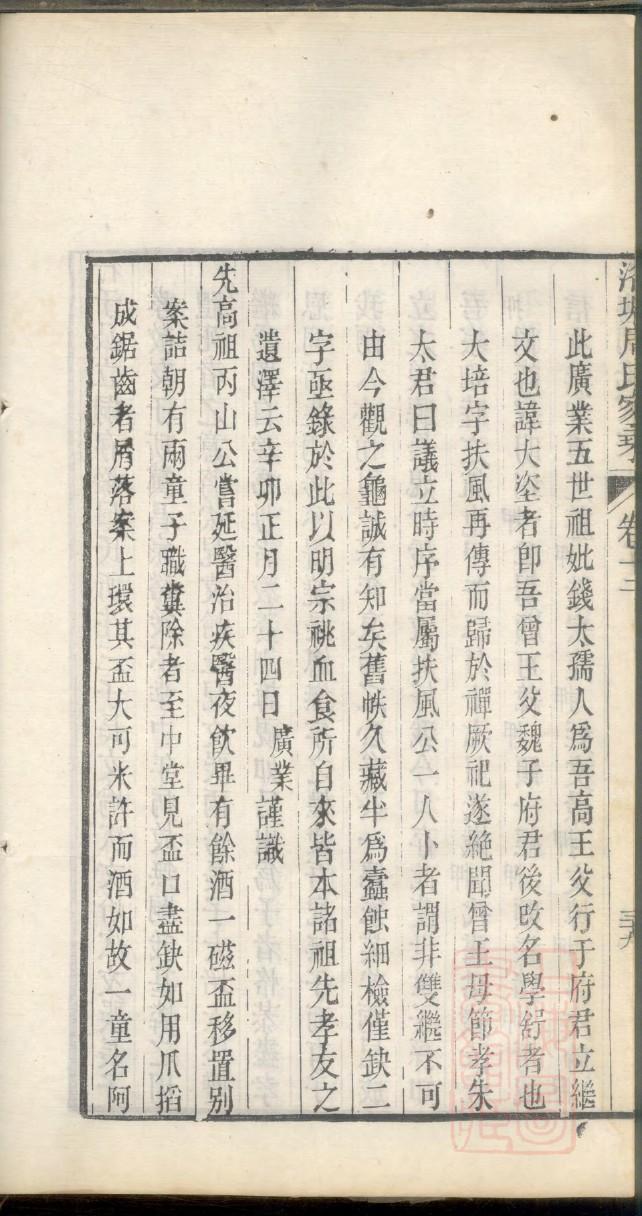 洛塘周氏家乘 卷十二 三十九
此廣業五世祖妣錢太孺人爲吾高王父行于府君立繼
文也諱大垐者卽吾曾王父魏子府君後改名學舒者也
大培字扶風再傳而歸於禪厥祀遂絶聞曾王母節孝朱
太君曰議立時序當屬扶風公一人卜者謂非雙繼不可
由今觀之龜誠有知矣舊帙久藏半爲蠹蝕細檢僅缺二
字亟錄於此以明宗祧血食所自來皆本諸祖先孝友之
遺澤云辛卯正月二十四日 廣業謹識
先高祖丙山公嘗延醫治疾醫夜飲畢有餘酒一磁盃移置别
案詰朝有兩童子職糞除者至中堂見盃口盡缺如用爪搯
成鋸齒者屑落案上環其盃大可米許而酒如故一童名阿